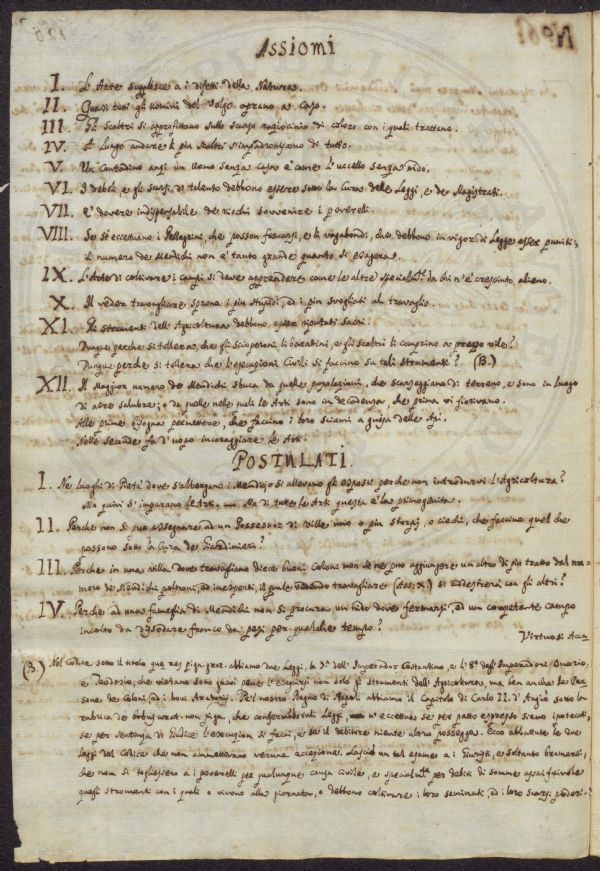 Assiomi
I. L'Arte supplisce a i difetti della Natura.
II. Quasi tutti gli Uomini del Volgo oprano a Caso.
III. Gli Scaltri si approfittano sullo scarso raziocinio di coloro con i quali trattano.
IV. A lungo andare i più scaltri s'impadroniscono di tutto.
V. Un Contadino anzi un Uomo senza Casa è come l'uccello senza nido.
VI. I deboli, e gli scarsi di talento debbono essere sotto la Cura delle Leggi, e de' Magistrati.
VII. È dovere indispensabile de' ricchi sovvenire i poverelli.
VIII. Se si eccettuano i Pellegrini, che posson fermarsi, e li vagabondi, che debbono in vigor di Legge esser puniti;
il numero de' Mendichi non è tanto grande quanto si esagera.
IX. L'Arte di coltivare i campi si deve apprendere come le altre specialmte. da chi n'è cresciuto, alieno.
X. Il veder travagliare sprona i più stupidi, ed i più svogliati al travaglio.
XI. Gli strumenti dell'Agricoltura debbono esser riputati Sacri:
Dunque perche si tollera, che gli scioperoni li barattini, e gli scaltri li comprino a prezzo vile?
Dunque perche si tollera che l'esecuzioni Civili si faccino su tali strumenti? (B.)
XII. Il Maggior numero de' Mendichi sbuca da quelle popolazioni, che scarseggiano di terreno, e sono in luogo
di aere salubre; o da quelle nelle quali le Arti sono in decadenza, che prima vi fiorivano.
Alle prime bisogna permettere, che faccino i loro sciami a guisa delle Api.
Nelle seconde fa d'uopo incoraggiare le Arti.
POSTULATI.
I. Ne' luoghi di Pietà dove s'albergano i Mendici o si allevano gli esposti perche non introdurvi l'Agricoltura?
Ma quivi s'imparano le Arti. — Ma di tutte le Arti questa è la primogenita.
II. Perche non si può assegnare ad un Possessor di Ville uno o più storpj, o ciechi, che faccino quel che
possono sotto la Cura de' Giardinieri?
III. Perche in una villa dove travagliano diece buoni Coloni non se ne può aggiungere un altro di più tratto dal nu-
mero de' Mendichi poltroni, ed inesperti, il quale vedendo travagliare (Ass: X.) si addestrerà con gli altri?
IV. Perche ad una famiglia di Mendichi non si procura un nido dove fermarsi, ed un competente campo
incolto da dissodare franco da pesi per qualche tempo?
Virtuosi Acca
(B.) Nel Codice sotto il titolo quæ res pign. abbiamo due Leggi, la 7ª dell'Imperador Costantino, e l'8ª degl'Imperadori Onorio,
e Teodosio, che vietano sotto gravi pene l'eseguirsi non solo gli strumenti dell'Agricoltura, ma ben anche le Per-
sone de' Coloni, ed i bovi Aratorj. Pe'l nostro Regno di Napoli abbiamo il Capitolo di Carlo II. d'Angiò sotto la
rubrica non pign. che confermando tali Leggi, n'eccettua se per patto espresso sieno ipotecati,
se per sentenza di Giudice l'execuzion si facci, e se il debitore niente altro possegga. Ecco abbattute le due
Leggi del Codice che non ammettevano veruna eccezione. Lascio un tal esame a i Giuristi, e soltanto bramerei,
che non si togliessero a i poverelli per qualunque causa civile, e specialmte. per debiti di somme assai fievole
quegli stromenti con i quali o vivono alla giornata, o debbono coltivare i loro seminati, ed i loro scarsi poderi.